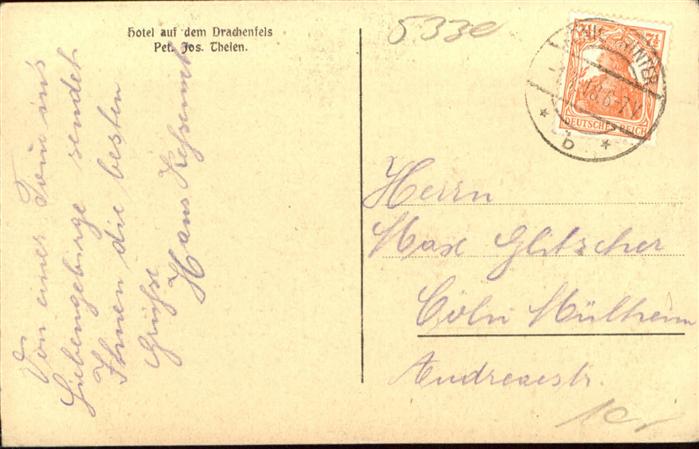 Hotel auf dem Drachenfels
Pet. Jos. Thelen.
Von einer Tour ins
Siebengebirge sendet
Ihnen die besten
Grüße
Hans
5330
7½ 7½
DEUTSCHES REICH
WINTER
18.6-7V
* b *
Herrn
Max Glitscher
Cöln Mülheim
Andreaestr.